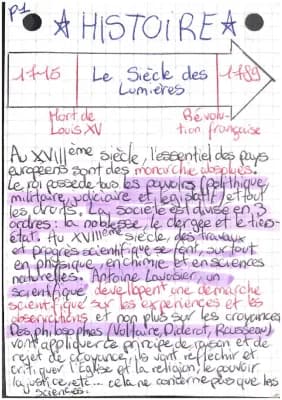 P1
☆ HISTOIRE ☆
1715 Le Siècle des Lumières 1789
Mort de Louis XV
Révolu-
tion française
Au XVIIIème siècle, l'essentiel des pays
européens sont des monarchie absolues.
Le roi possède tous les pouvoirs (polithique,
militaire, judiciaire et législatif) et tout
les droits. La société est divisé en 3
ordres: la noblesse, le clergée et le tiers-
état. Au XVIIIème siècle, des travaux
et progrès scientifique se font, surtout
en physique, en chimie et en sciences
naturelles. Antoine Lavoisier, un
scientifique développent une démarche
scientifique sur les expériences et les
observations et non plus sur les croyances
Des philosophes (Voltaire, Diderot, Rousseau)
vont appliquer ce principe de raison et de
rejet de croyance, ils vont réfléchir et
critiquer l'Eglise et la religion, le pouvoir
la justice, etc... cela ne concerne plus que les
sciences.